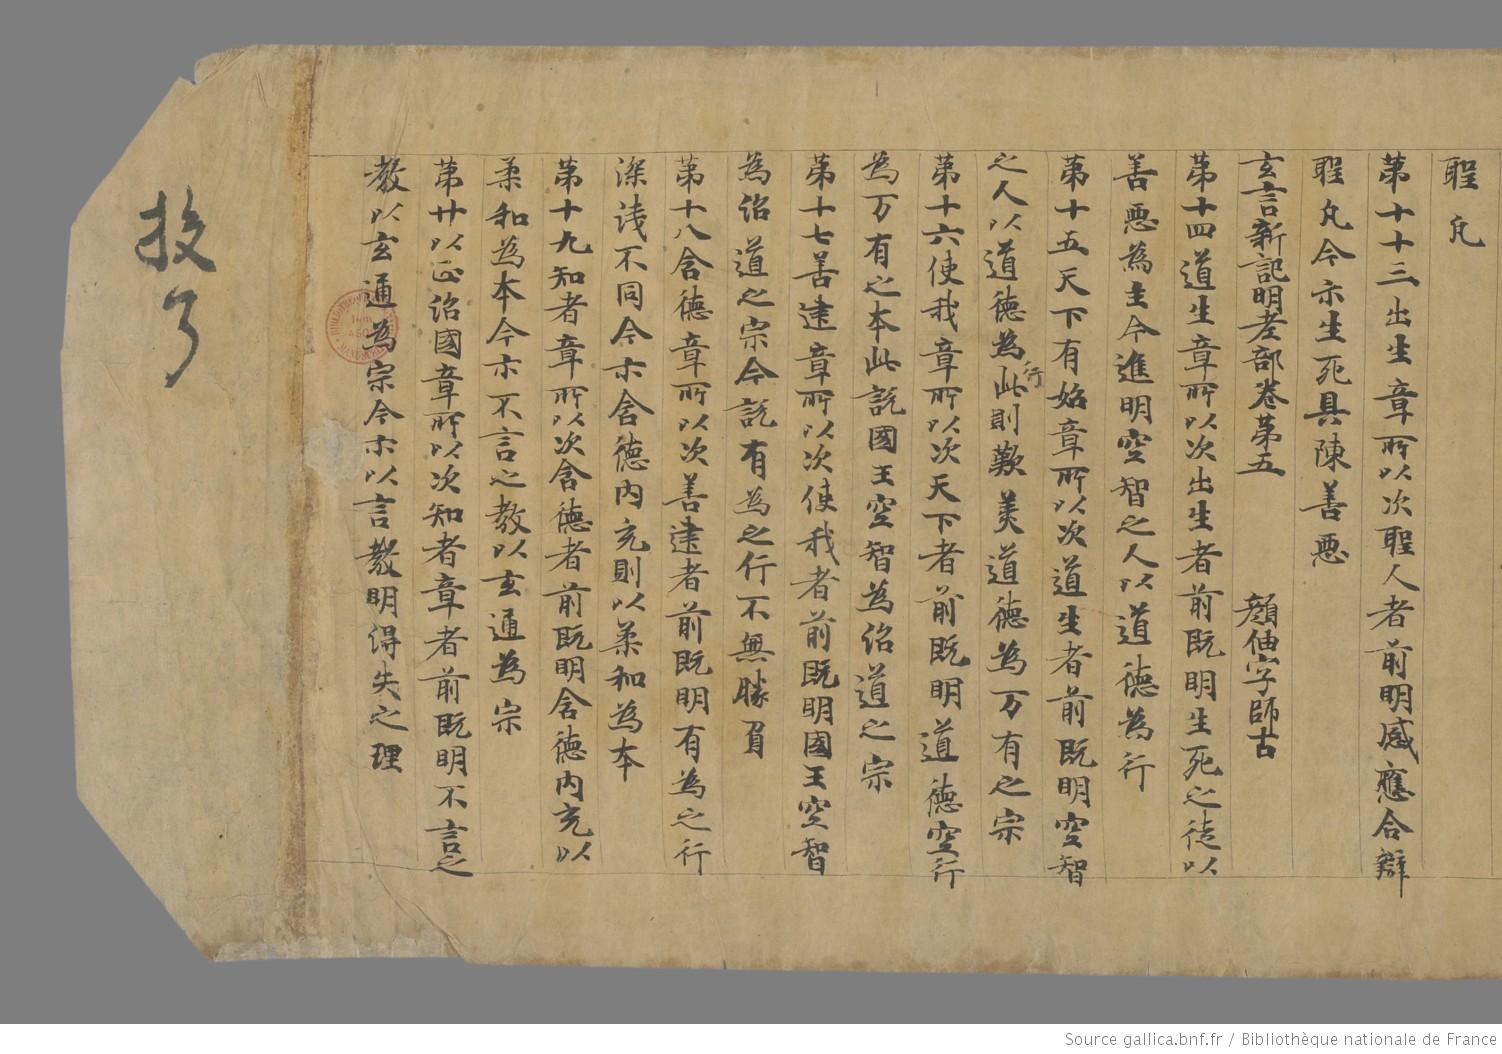 聖凡
第十十三出生章所以次聖人者前明感應合辯
聖凡今示生死具陳善惡
玄言新記明老部卷第五 顏伷字師古
第十四道生章所以次出生者前既明生死之徒以
善惡為主今進明空智之人以道德為行
第十五天下有始章所以次道生者前既明空智
之人以道德為行此則歎美道德為万有之宗
第十六使我章所以次天下者前既明道德空行
為万有之本此說國王空智為治道之宗
第十七善建章所以次使我者前既明國王空智
為治道之宗今說有為之行不無勝負
第十八含德章所以次善建者前既明有為之行
深淺不同今示含德內充則以柔和為本
第十九知者章所以次含德者前既明含德內充以
柔和為本今示不言之教以玄通為宗
第廿以正治國章所以次知者章者前既明不言之
教以玄通為宗今示以言教明得失之理
Source gallica.bnf.fr / Bibliothèque nationale de France